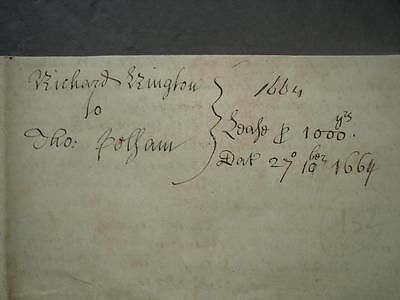 Richard Kington
to
Tho: Pelham
1664
Lease p 1000 yrs.
Dat 27° 10ber 1664
132